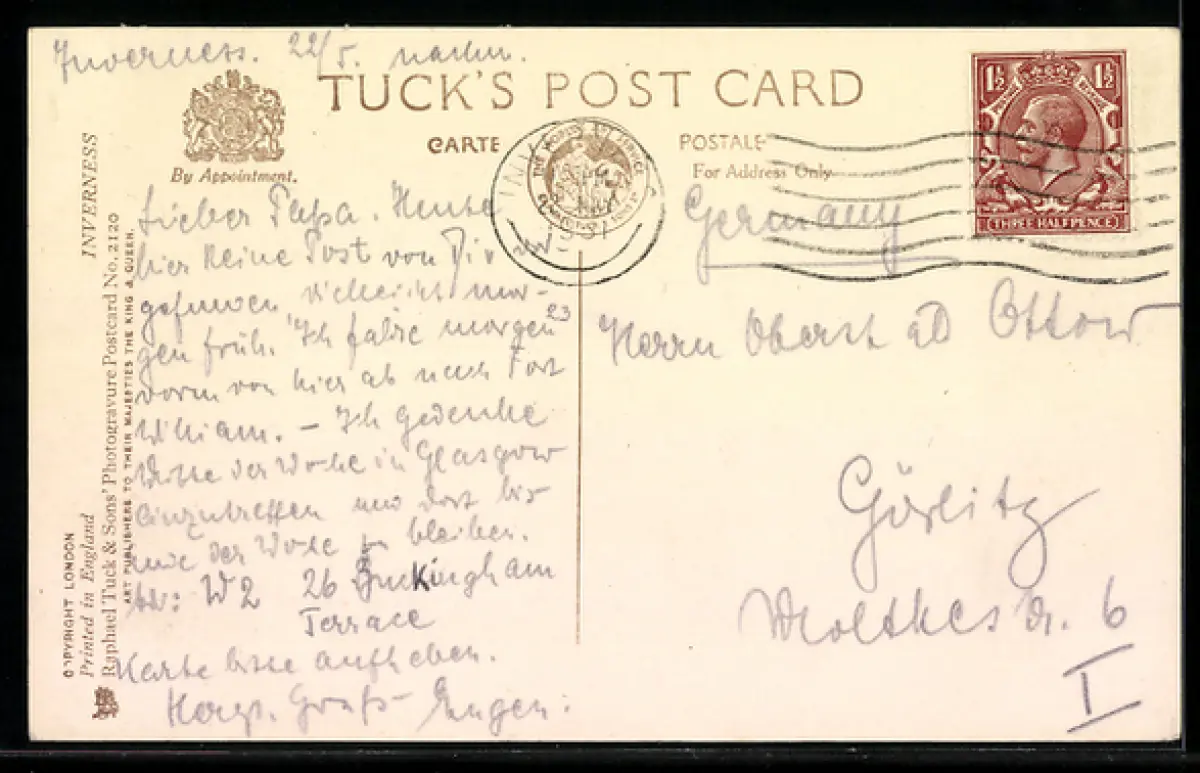 Inverness. 22/5. nachm.
TUCK'S POST CARD
CARTE POSTALE
By Appointment.
For Address Only
1½ 1½
THREE HALFPENCE
INVERNESS
1931
Lieber Papa. Heute
hier keine Post von Dir
gefunden, vielleicht mor-
gen früh. Ich fahre morgen 23
vorm von hier ab nach Fort
William. – Ich gedenke
Mitte der Woche in Glasgow
einzutreffen und dort bis
Ende der Woche zu bleiben.
W2 26 Buckingham
Terrace
Karte bitte aufheben.
Herzl. Gruß Eugen.
Germany
Herrn Oberst aD Ottow
Görlitz
Moltkestr. 6
I
INVERNESS
Raphael Tuck & Sons' Photogravure Postcard No. 2120
ART PUBLISHERS TO THEIR MAJESTIES THE KING & QUEEN.
COPYRIGHT LONDON
Printed in England